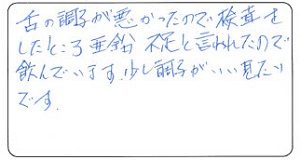 舌の調子が悪かったので検査を
したところ亜鉛不足と言われたので
飲んでいます。少し調子がいい見たい
です。